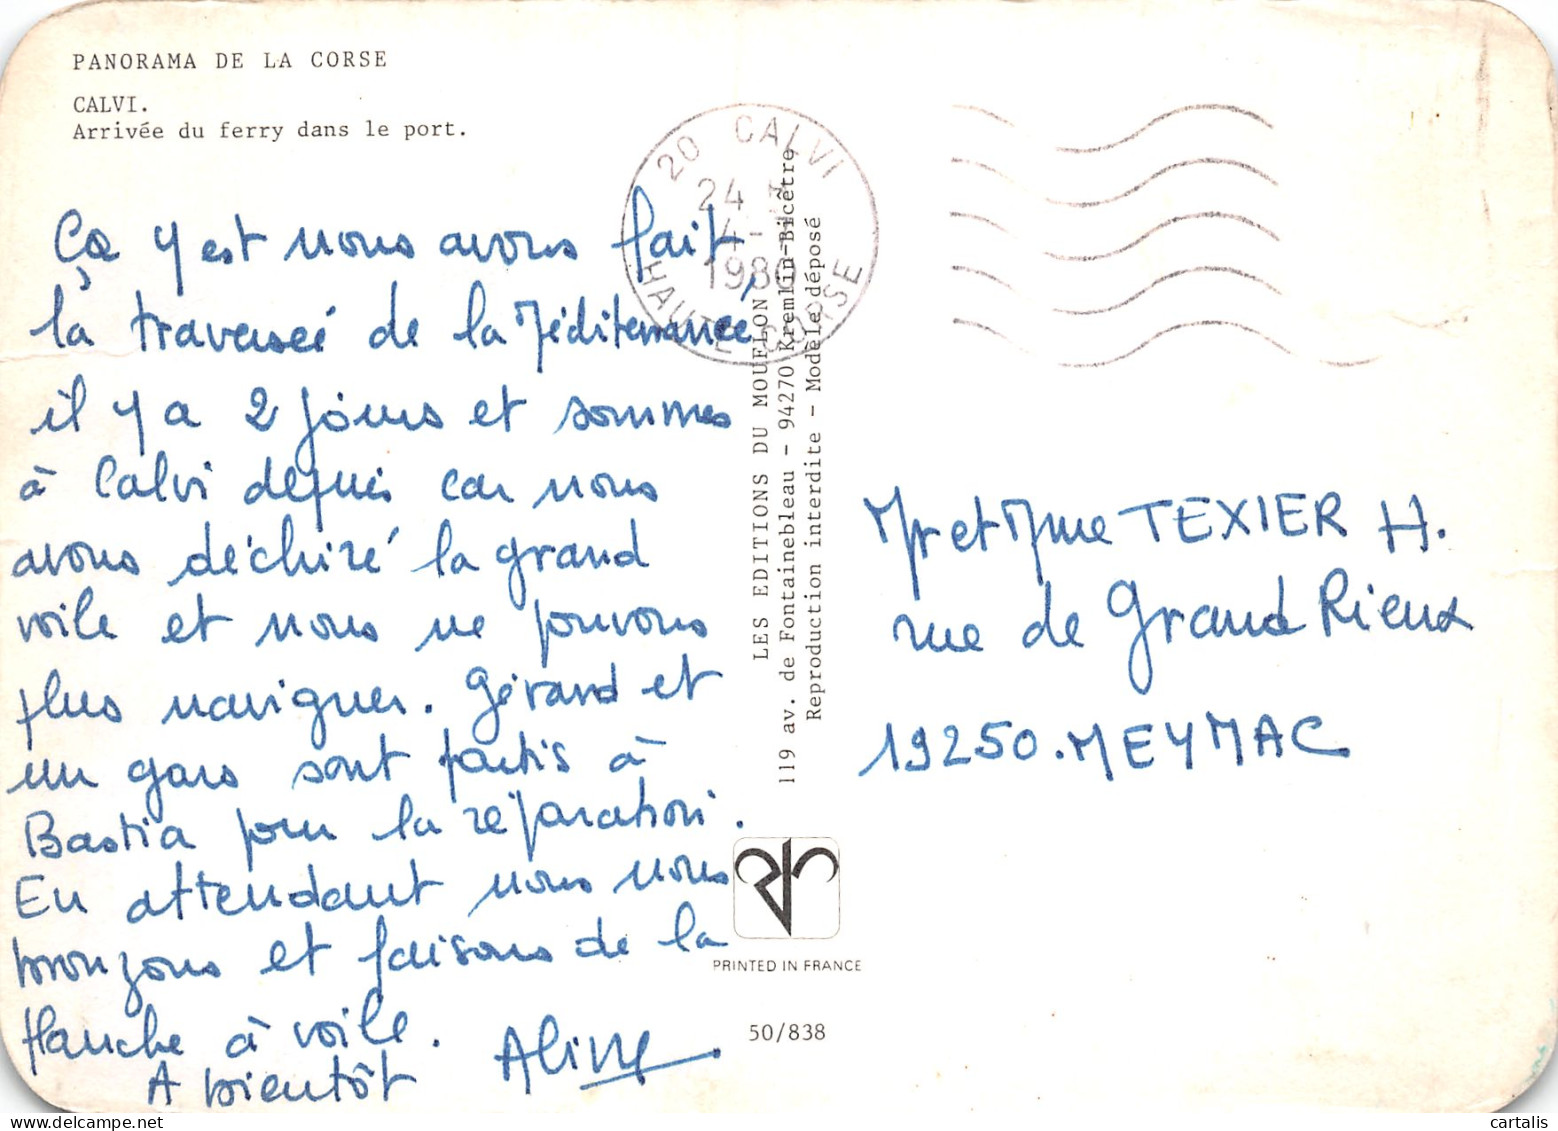 PANORAMA DE LA CORSE
CALVI.
Arrivée du ferry dans le port.
20 CALVI
24
4-
HAUTE CORSE
Ça y est nous avons fait
la traverseé de la Méditerrannée,
il y a 2 jours et sommes
à Calvi depuis car nous
avons déchiré la grand
voile et nous ne pouvons
plus naviguer. Gérard et
un gars sont partis à
Bastia pour la réparation.
En attendant nous nous
bronzons et faisons de la
planche à voile.
A bientôt Aline
LES EDITIONS DU MOUFLON
119 av. de Fontainebleau - 94270 Kremlin-Bicêtre
Reproduction interdite - Modèle déposé
PRINTED IN FRANCE
50/838
Mr et Mme TEXIER H.
rue de Grand Rieux
19250.MEYMAC
cartalis